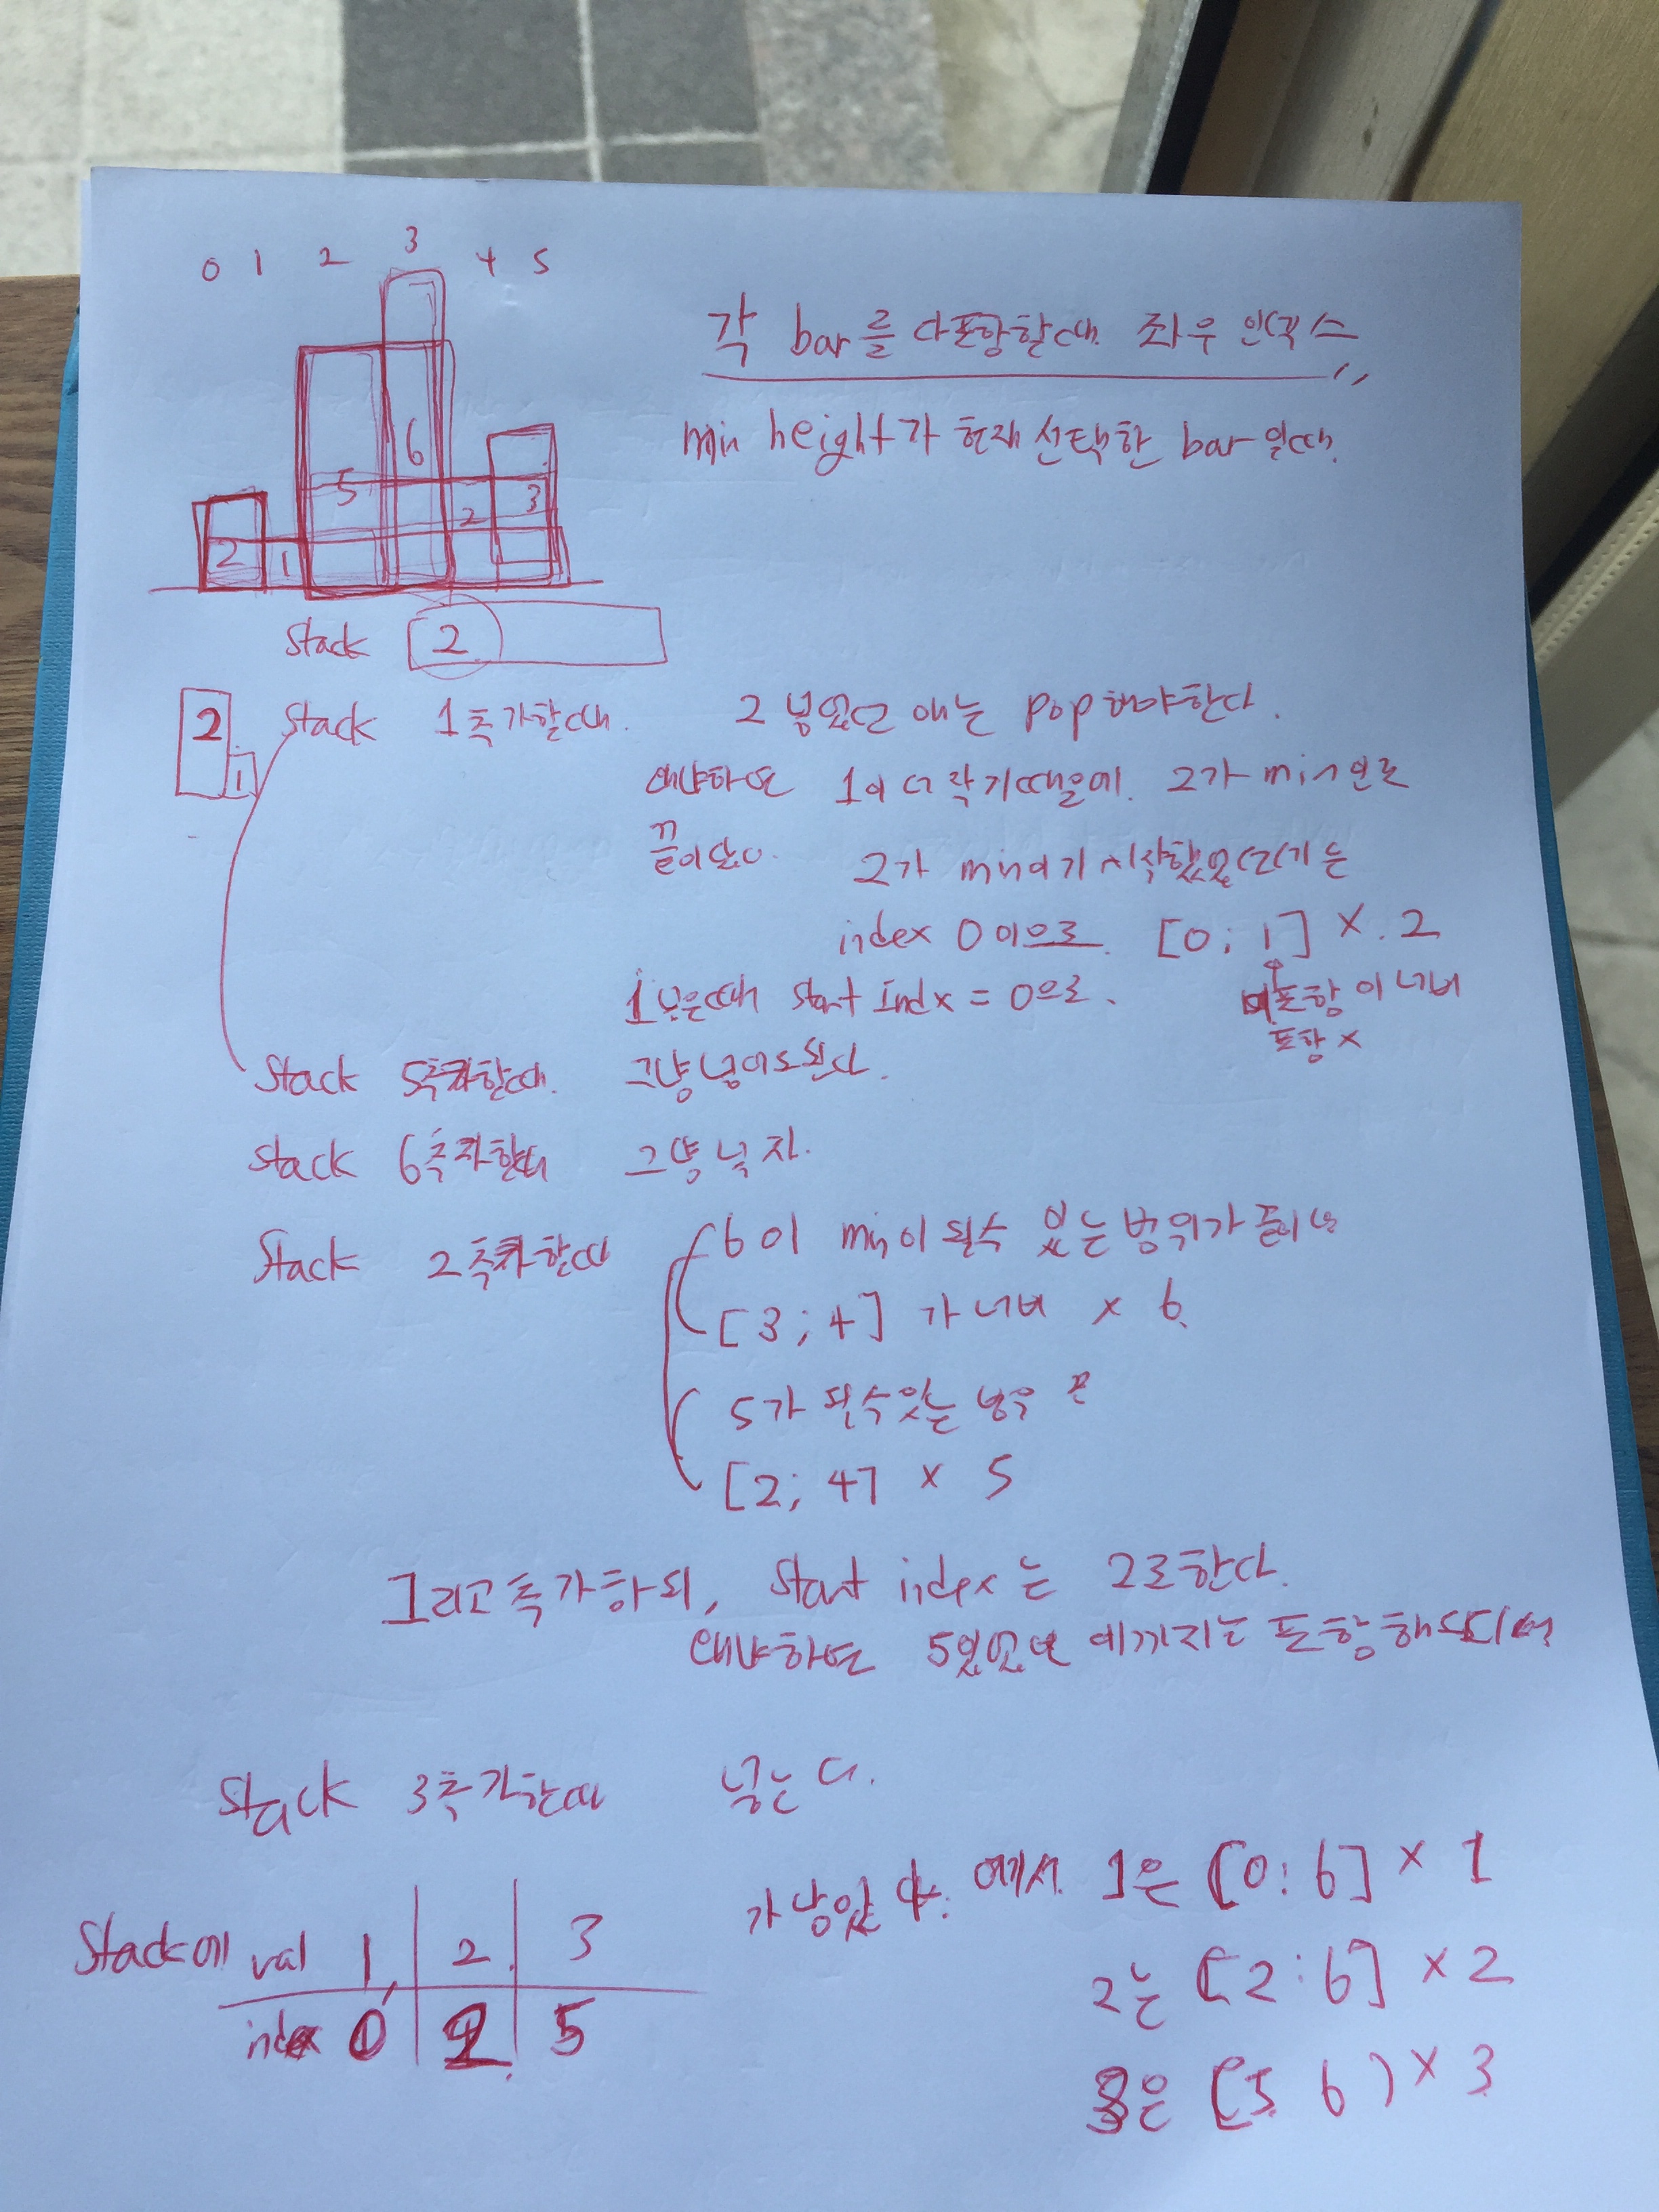 0 1 2 3 4 5
각 bar를 다 포함할때 좌우 인덱스
min height가 현재 선택한 bar 일때.
2 1 5 6 2 3
Stack 2
2 1
Stack 1추가할때. 2 넣었던 애는 pop 해야한다.
왜냐하면 1이 더 작기때문에. 2가 min인로
끝이난다. 2가 min이기 시작했었던거는
index 0 이으로 [0; 1] × 2
1넣을때 start Index = 0으로. 미포함 이 너비
포함 x
Stack 5추가할때. 그냥 넣어도된다.
stack 6추가할때 그냥 넣자.
Stack 2추가할때 6이 min이 될수 있는 범위가 끝이남
[3; 4] 가 너비 × 6
5가 될수있는 범위 끝
[2; 4] × 5
그리고 추가하되, start index는 2로한다.
왜냐하면 5있었던 데까지는 포함해도되어서
Stack 3추가할때 넣는다.
Stack에 val 1, 2 3 가 남았다. 에서 1은 [0: 6] × 1
index 0 2 5 2는 [2: 6] × 2
3은 [5 6) × 3